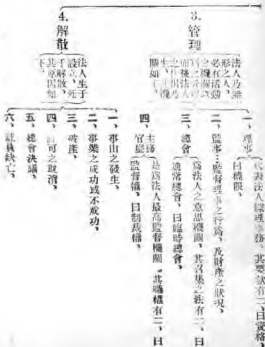 3. 管理
法人乃無
形之人，
必有活動
之機關以
一、理事
代表法人綜理事務，其要款有二、曰資格、
曰權限、
二、監事…監督理事之行為、及財產之狀況、
三、總會
為法人之意思機關、其召集之法有二、曰
通常總會、曰臨時總會、
四、主務官屋
是為法人最高監督機關、其職權有二、曰
監督權、曰制裁權、
4. 解散
法人生于
設立、死
于解散、
其原因如
下、
一、事由之發生、
二、事業之成功或不成功、
三、破產、
四、許可之取消、
五、總會決議、
六、社員缺亡、